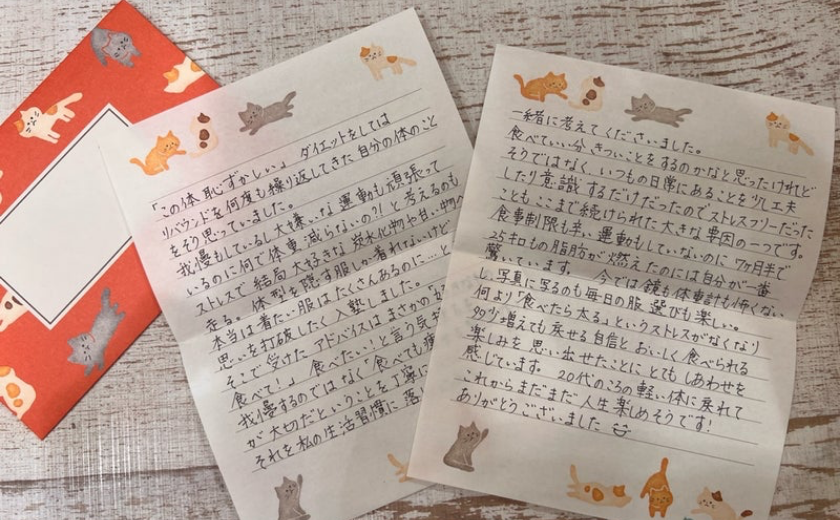 「この体 恥ずかしい」 ダイエットをしては
リバウンドを何度も繰り返してきた 自分の体のこと
をそう思っていました。
我慢もしているし大嫌いな 運動も頑張って
いるのに何で体重減らないの?! と考えるのも
ストレスで 結局 大好きな 炭水化物や甘い物の
走る。 体型を隠す服しか着れないけど
本当は着たい服はたくさんあるのに…と
思いを打破したく 入塾しました。
そこで受けた アドバイスは まさかの「
食べて!」 食べたい!と言う気
我慢するのではなく「食べても
が大切だということを丁寧に
それを私の生活習慣に 落
一緒に考えてくださいました。
食べていい分 きついことをするのかなと思ったけれど
そうではなく いつもの日常にあることを 少し工夫
したり 意識 するだけだったので ストレスフリーだった
ことも ここまで続けられた 大きな要因の一つです。
食事制限も辛い運動もしていないのに 7ヶ月半で
25キロもの脂肪が 燃えたのには 自分が一番
驚いています。 今では 鏡も体重計も怖くない
し、写真に写るのも毎日の服 選びも楽しい。
何より「食べたら太る」というストレスがなくなり
多少増えても 戻せる自信と おいしく 食べられる
楽しみを 思い出せたことに とても しあわせを
感じています。 20代のころの 軽い体に 戻れて
これから まだまだ 人生 楽しめそうです!
ありがとう ございました